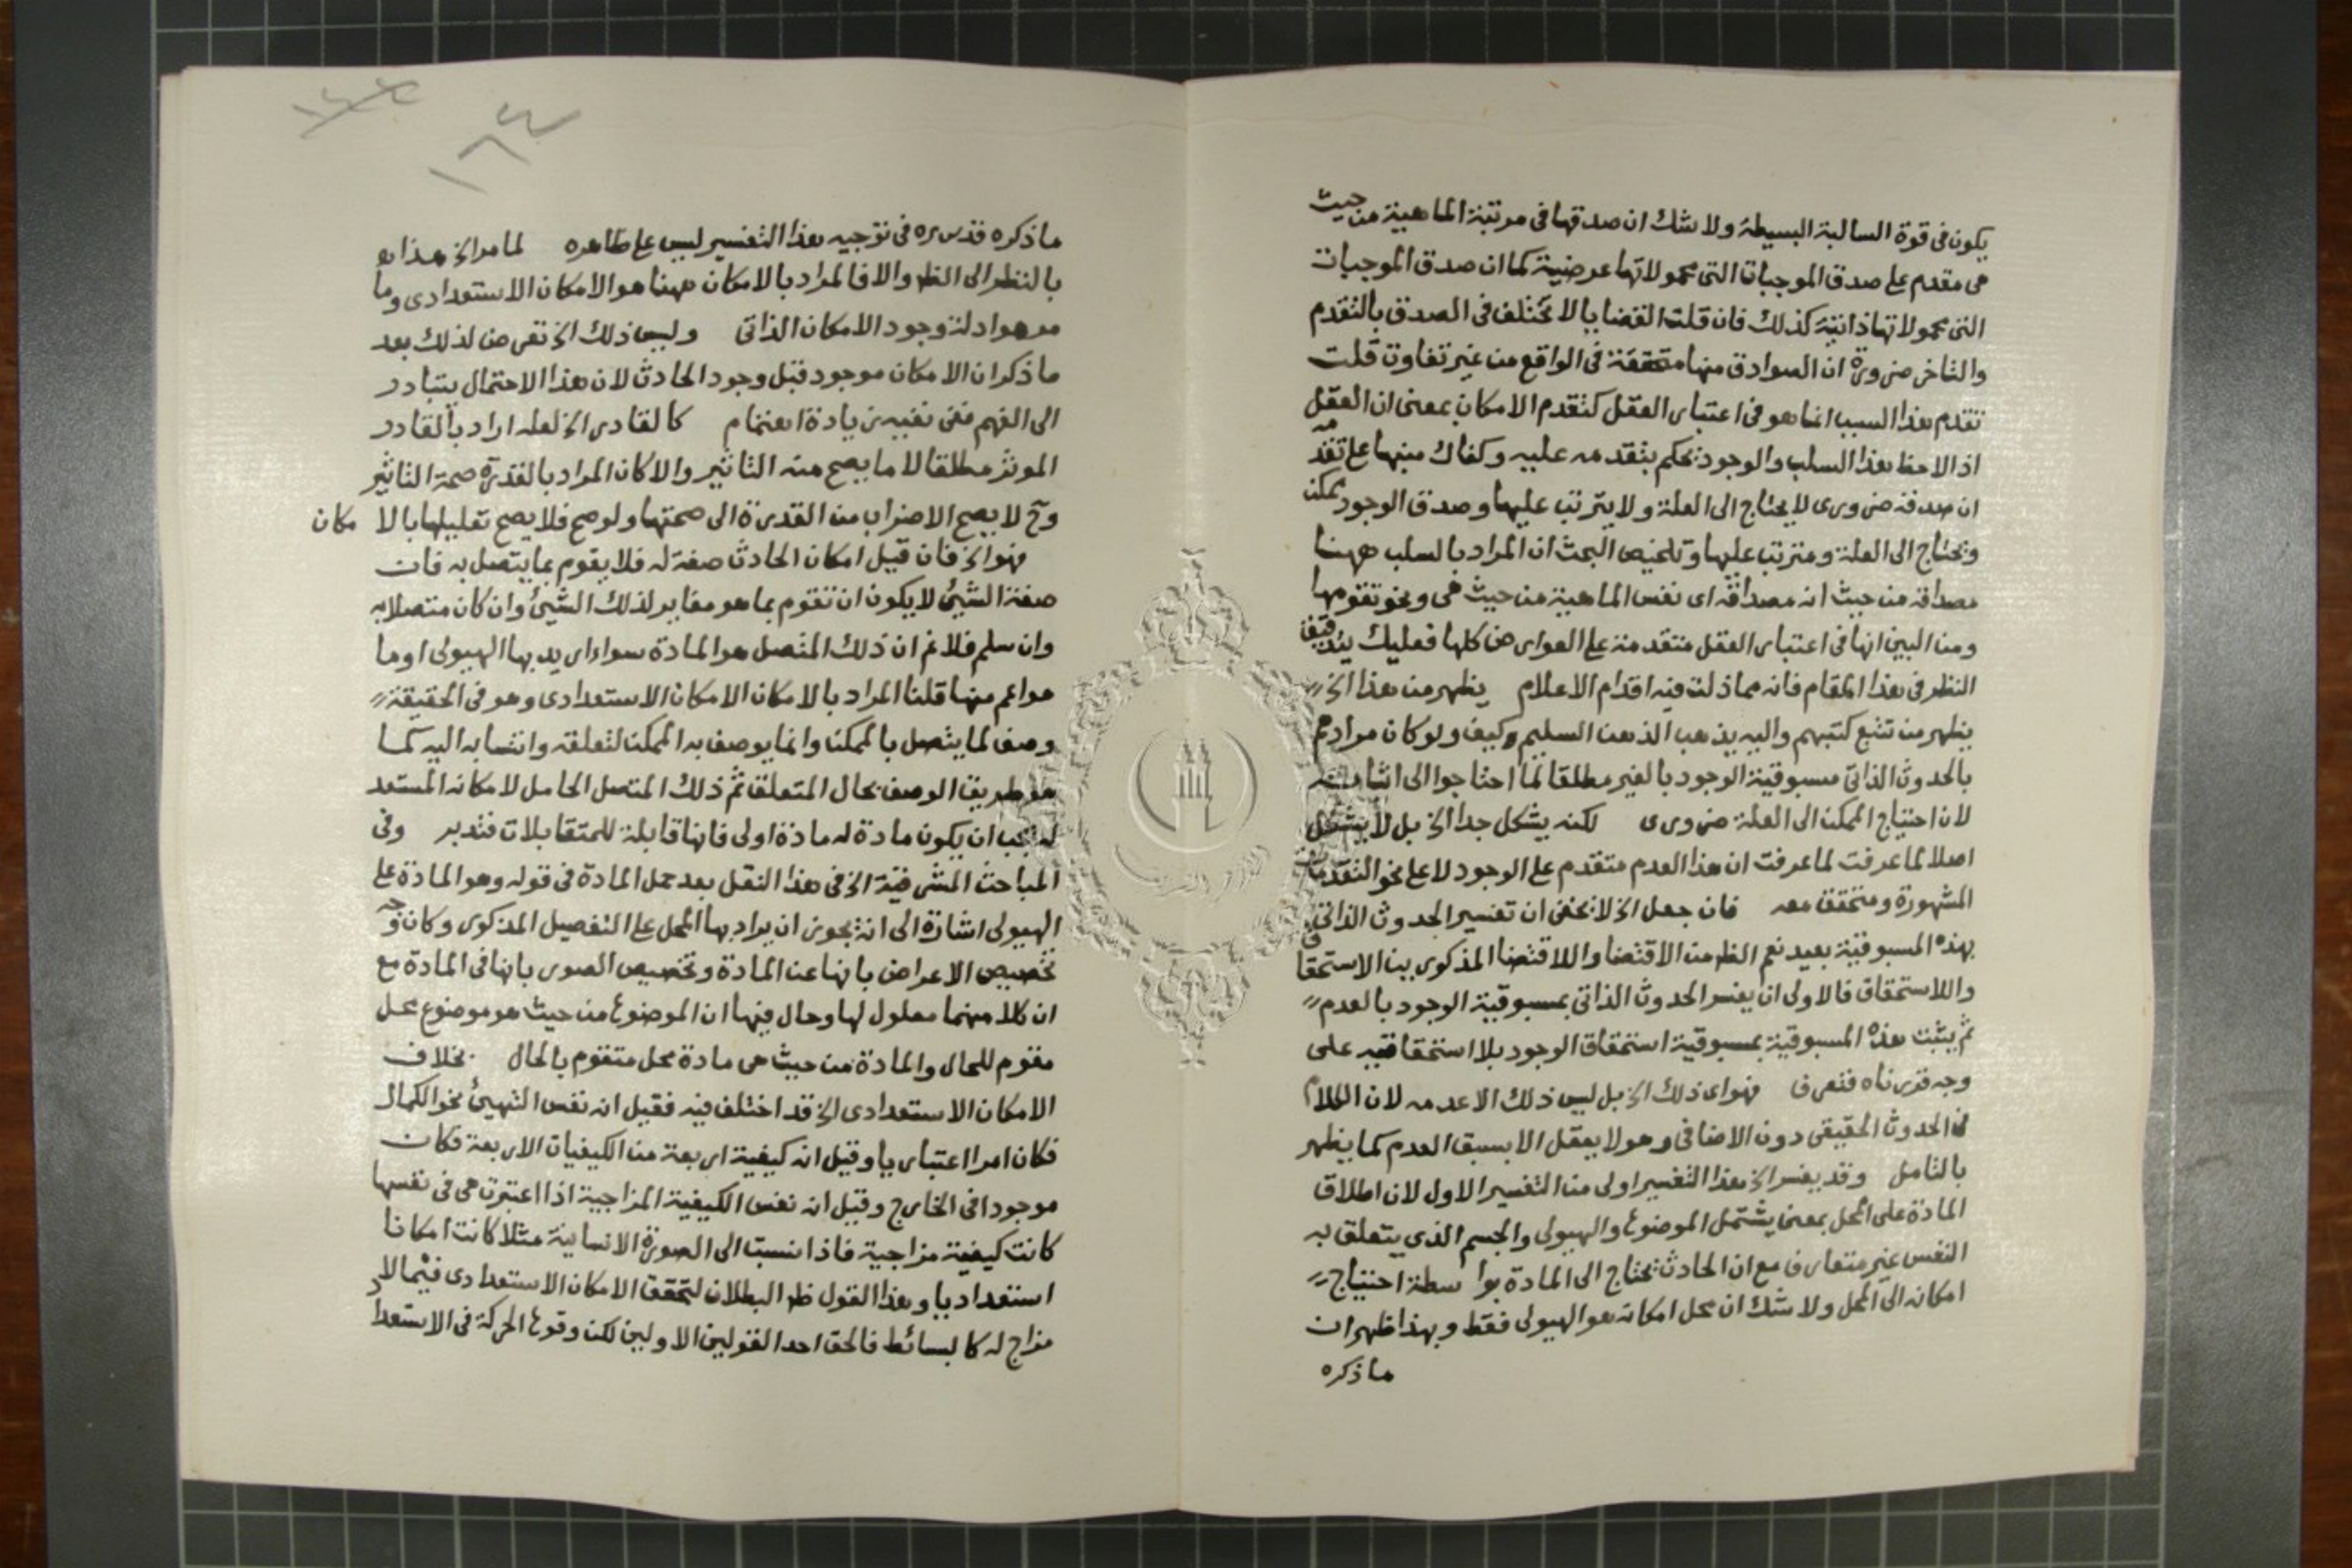 يكون فى قوة السالبة البسيطة ولا شك ان صدقها فى مرتبة الماهية من حيث
هى مقدم على صدق الموجبات التى محمولاتها عرضية كما ان صدق الموجبات
التى محمولاتها ذاتية كذلك فان قلت القضايا لا تختلف فى الصدق بالتقدم
والتاخر ضرورة ان الصوادق منها متحققة فى الواقع من غير تفاوت قلت
تقدم هذا السبب انما هو فى اعتبار العقل كتقدم الامكان بمعنى ان العقل
اذا لاحظ هذا السلب والوجود يحكم بتقدمه عليه وكفاك منبها على تقدمه
ان صدقه ضرورى لا يحتاج الى العلة ولا يترتب عليها وصدق الوجود ممكن
ويحتاج الى العلة ومترتب عليها وتلخيص البحث ان المراد بالسلب ههنا
مصداقه من حيث انه مصداقه اى نفس الماهية من حيث هى ونحو تقومها
ومن البين انها فى اعتبار العقل متقدمة على العوارض كلها فعليك بتدقيق
النظر فى هذا المقام فانه مما ذلت فيه اقدام الاعلام يظهر من هذا الخ
يظهر من تتبع كتبهم واليه يذهب الذهن السليم وكيف ولو كان مرادهم
بالحدوث الذاتى مسبوقية الوجود بالغير مطلقا لما احتاجوا الى اثباته
لان احتياج الممكن الى العلة ضرورى لكنه يشكل جدا الخ بل لا يشكل
اصلا لما عرفت لما عرفت ان هذا العدم متقدم على الوجود لا على نحو التقدمات
المشهورة ومتحقق معه فان جعل الخ لا يخفى ان تفسير الحدوث الذاتى
بهذه المسبوقية بعيد نعم الظ من الاقتضا واللااقتضا المذكور بين الاستحقاق
واللااستحقاق فالاولى ان يفسر الحدوث الذاتى بمسبوقية الوجود بالعدم
ثم يثبت هذه المسبوقية بمسبوقية استحقاق الوجود بلا استحقاقيه على
وجه قررناه فتعرف فهو اى ذلك الخ بل ليس ذلك الا عدمه لان الكلام
فى الحدوث الحقيقى دون الاضافى وهو لا يعقل الا بسبق العدم كما يظهر
بالتامل وقد يفسر الخ هذا التفسير اولى من التفسير الاول لان اطلاق
المادة على المحل بمعنى يشتمل الموضوع والهيولى والجسم الذى يتعلق به
النفس غير متعارف مع ان الحادث يحتاج الى المادة بوا سطة احتياج
امكانه الى المحل ولا شك ان محل امكانه هو الهيولى فقط وبهذا ظهر ان
ما ذكره
١٦٤
ما ذكره قدس سره فى توجيه هذا التفسير ليس على ظاهره لما مر الخ هذا هو
بالنظر الى الظ والا فالمراد بالامكان ههنا هو الامكان الاستعدادى وما
مر هو ادلة وجود الامكان الذاتى وليس ذلك الخ تعرض لذلك بعد
ما ذكر ان الامكان موجود قبل وجود الحادث لان هذا الاحتمال يتبادر
الى الفهم ففى نفيه زيادة اهتمام كالقادر الخ لعله اراد بالقادر
الموثر مطلقا لا ما يصح منه التاثير والا كان المراد بالقدرة صحة التاثير
وح لا يصح الاضراب من القدرة الى صحتها ولو صح فلا يصح تعليلها بالا مكان
فهو الخ فان قيل امكان الحادث صفة له فلا يقوم بما يتصل به فان
صفة الشئ لا يكون ان تقوم بما هو مغاير لذلك الشئ وان كان متصلا به
وان سلم فلا نم ان ذلك المتصل هو المادة سواء اريد بها الهيولى او ما
هو اعم منها قلنا المراد بالامكان الامكان الاستعدادى وهو فى الحقيقة
وصف لما يتصل بالممكن وانما يوصف به الممكن لتعلقه وانتسابه اليه كما
هو طريق الوصف بحال المتعلق ثم ذلك المتصل الحامل لامكانه المستعد
له يجب ان يكون مادة له مادة اولى فانها قابلة للمتقابلات فتدبر وفى
المباحث المشرقية الخ فى هذا النقل بعد حمل المادة فى قوله وهو المادة على
الهيولى اشارة الى انه يجوز ان يراد بها المحل على التفصيل المذكور وكان وجه
تخصيص الاعراض بانها عن المادة وتخصيص الصور بانها فى المادة مع
ان كلا منهما معلول لها وحال فيها ان الموضوع من حيث هو موضوع محل
مقوم للحال والمادة من حيث هى مادة محل متقوم بالحال بخلاف
الامكان الاستعدادى الخ قد اختلف فيه فقيل انه نفس التهيئ نحو الكمال
فكان امرا اعتباريا وقيل انه كيفية اربعة من الكيفيات الاربعة فكان
موجودا فى الخارج وقيل انه نفس الكيفية المزاجية اذا اعتبرت هى فى نفسها
كانت كيفية مزاجية فاذا نسبت الى الصورة الانسانية مثلا كانت امكانا
استعداديا وهذا القول ظ البطلان لتحقق الامكان الاستعدادى فيما لا
مزاج له كالبسائط فالحق احد القولين الاولين لكن وقوع الحركة فى الاستعداد